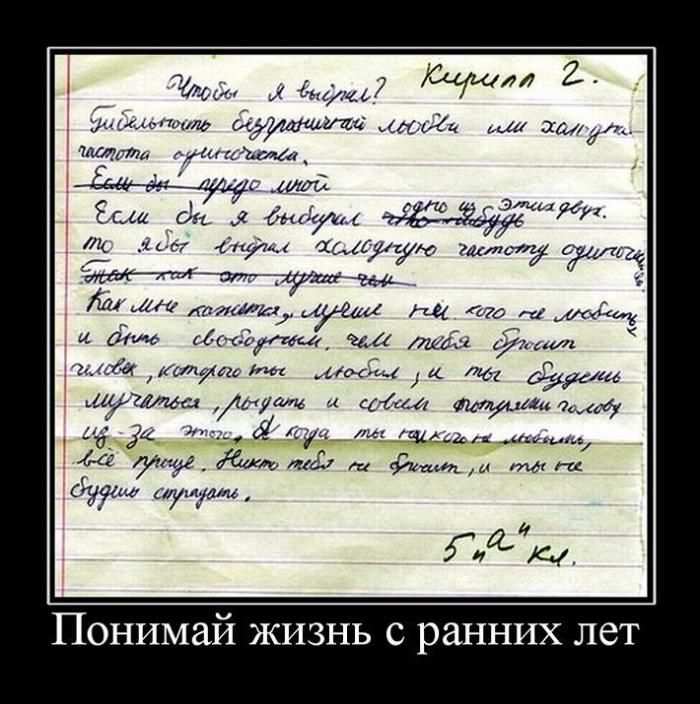 Чтобы я выбрал? Кирилл 2.
Гибельность безграничной любви или холодная
чистота одиночества.
Если бы передо мной
Если бы я выбирал что-нибудь одно из этих двух.
то я бы выбрал холодную чистоту одиночества
так как это лучше чем
Как мне кажется, лучше ни кого не любить
и быть свободным, чем тебя бросит
человек, которого ты любил, и ты будешь
мучаться, рыдать и совсем потеряеш голову
из-за этого. А когда ты ни кого не любишь,
всё проще. Никто тебя не бросит, и ты не
будешь страдать.
5 "а" кл.
Понимай жизнь с ранних лет